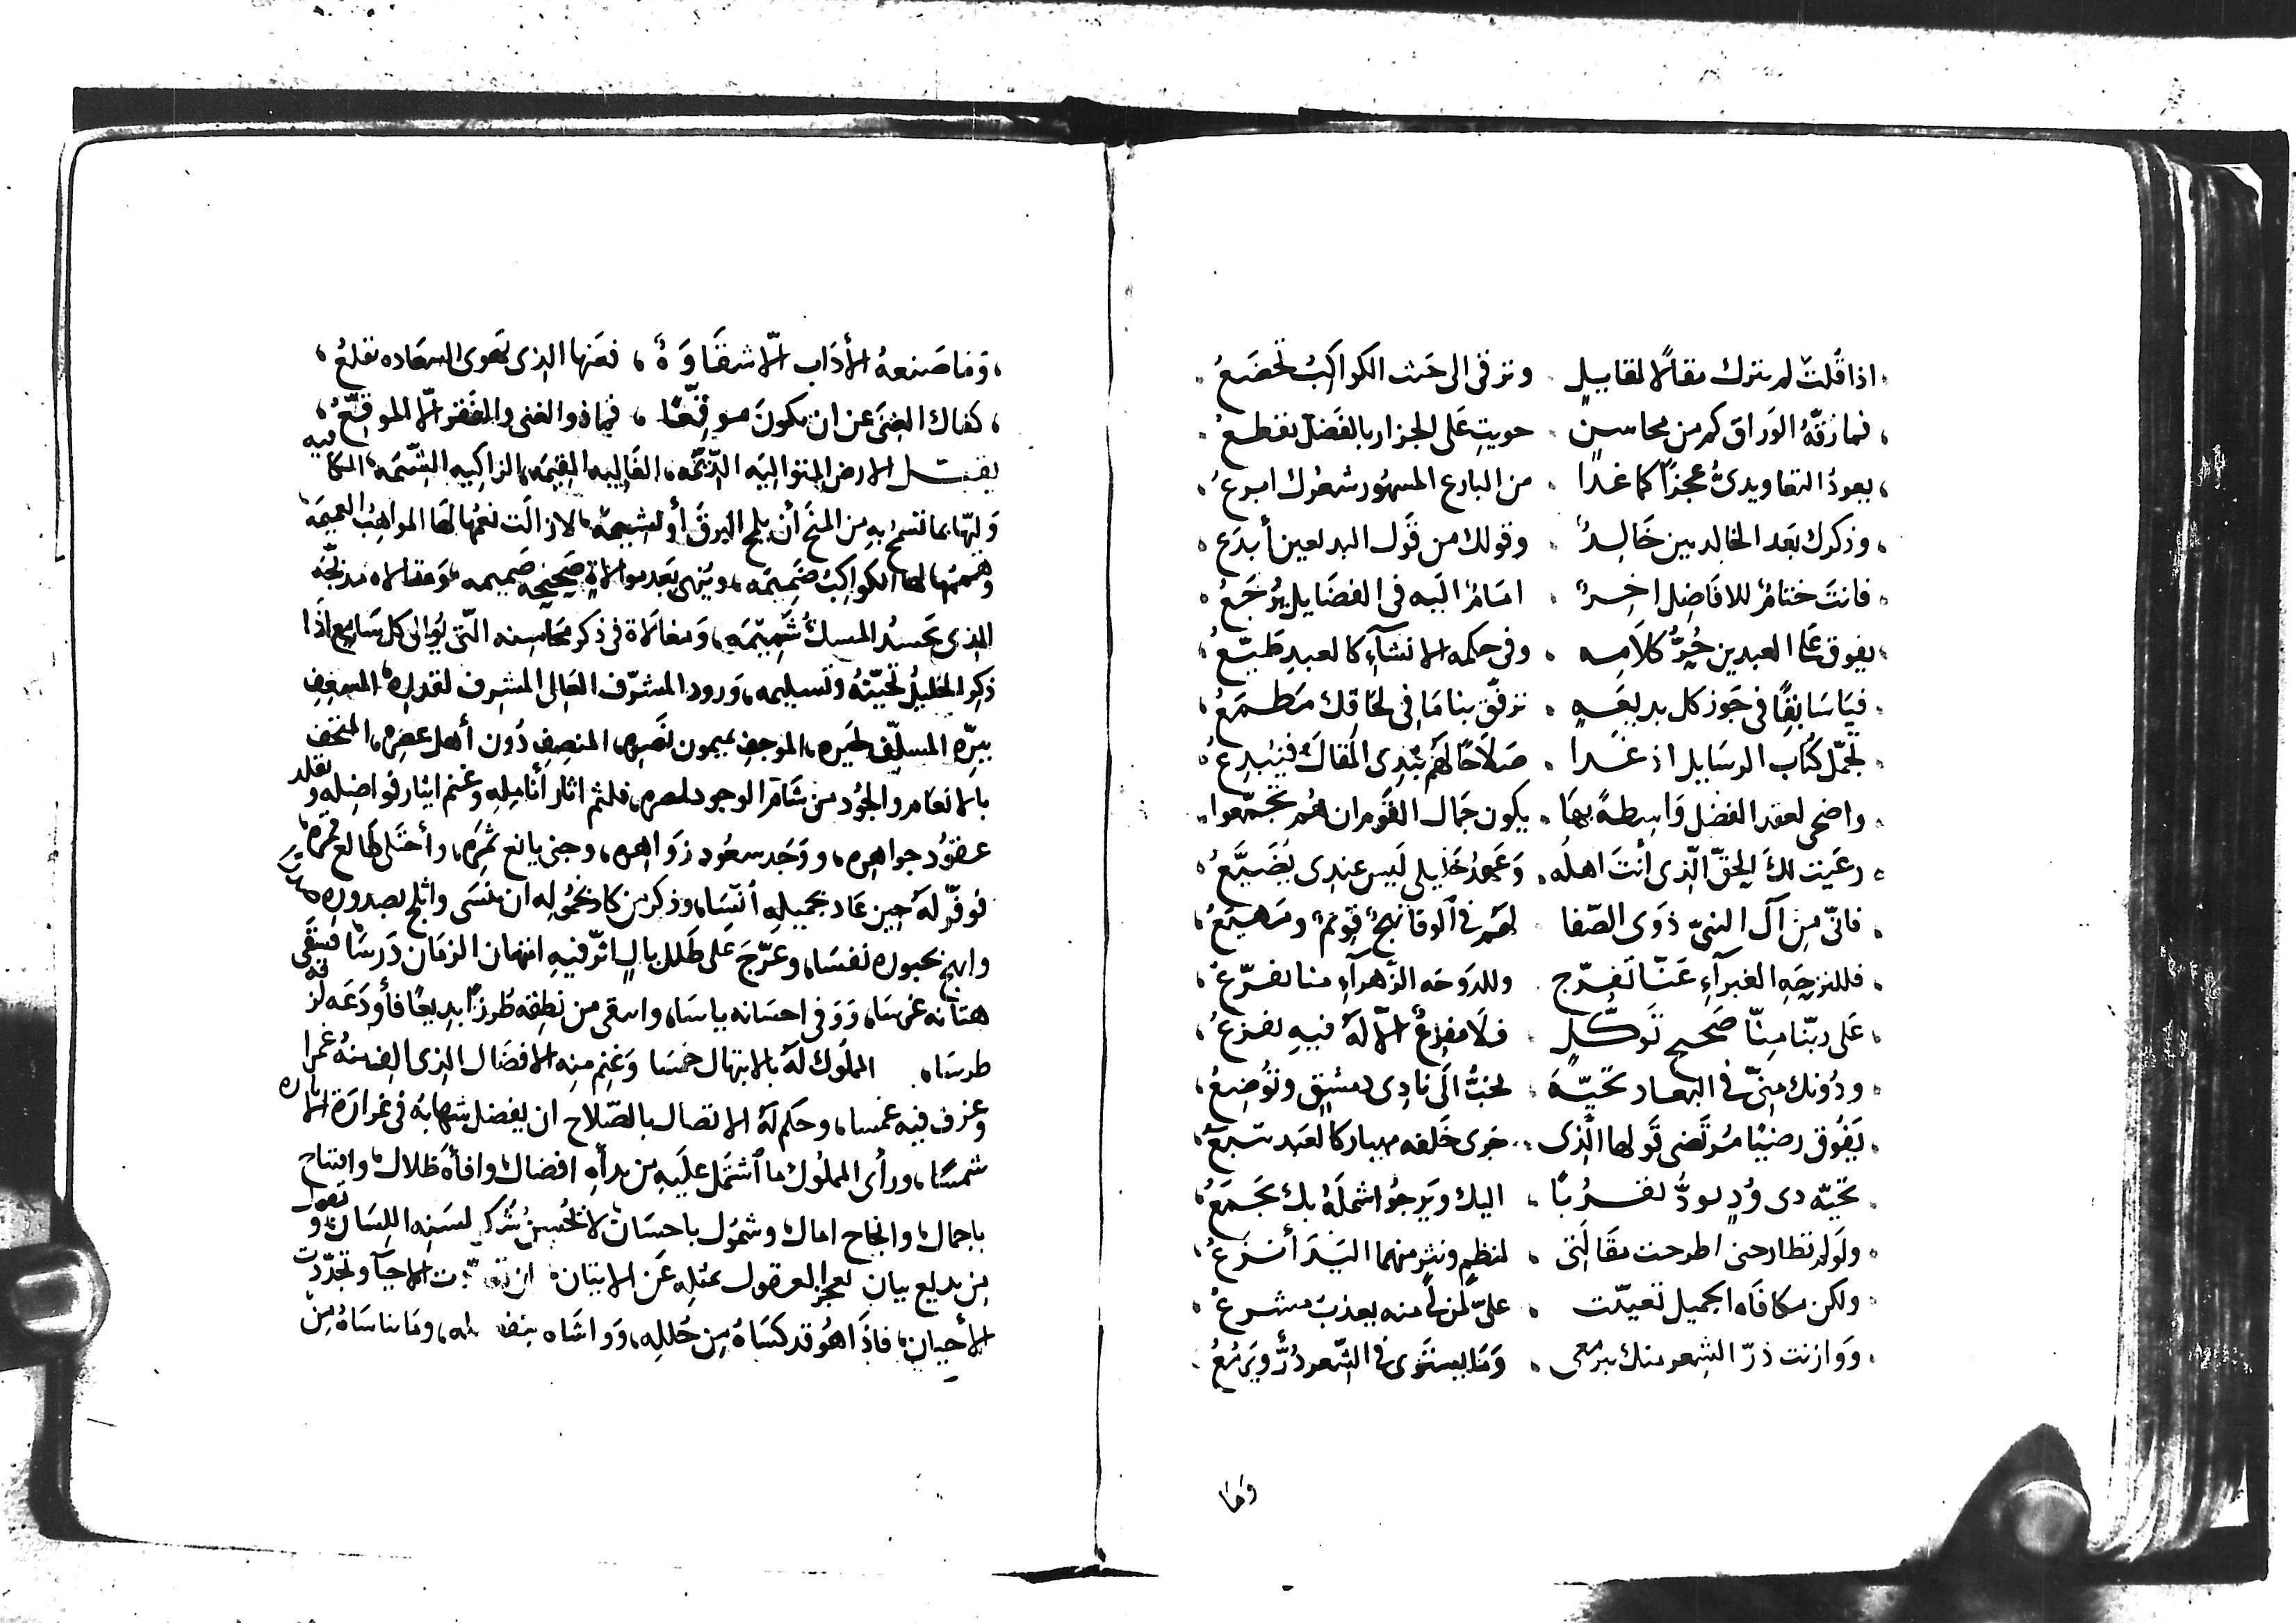 اذا قلت لم يترك مقالًا لقايل وترقى الى حيث الكواكب تخضع
فما زقه الوراق كم من محاسن حويت على الجزار بالفضل تقطع
يعوذ التعاويذي معجزًا كما غدا من البارع المشهور شعرك ابرع
وذكرك بعد الخالديين خالد وقولك من قول البديعين أبدع
فانت ختام للافاضل اخر امام اليه في الفضايل يرجع
يفوق على العبدين حر كلامه وفي حكمه الانشاء كالعبد طيع
فيا سابقًا في حوز كل بديعة ترفق بنا ما في لحاقك مطمع
تجمل كتاب الرسايل اذ غدا صلاحًا لهم يبدي المقال فيبدع
واضحى لعقد الفضل واسطة بها يكون جمال القوم ان هم تجمعوا
رعيت لك الحق الذي أنت اهله وعهد خليلي ليس عندي يضيع
فاني من آل النبي ذوي الصفا لهم في الوفا نهج قويم ومهيع
فللنزحة الغبراء عنا تفرج وللدوحة الزهراء منا تفرع
على ربنا منا صحيح توكل فلا مفزع الا له فيه نفزع
ودونك مني في البعاد تحية تخب الى نادي دمشق وتوضع
يفوق رضيًا مرتضى قولها الذي جرى خلفه مهيار كالعبد يتبع
تحية ذي ود يود تقربًا اليك ويرجو اشمله بك يجمع
ولو لم تطارحني اطرحت مقالتي لنظم ونثر منهما اليد أنزع
ولكن مكافاه الجميل تعينت على لمن لي منه يعذب مشرع
ووازنت در الشعر منك بيرمعي وما يستوى في الشعر در ويرمع
وما
وما صنعه الأداب الا شقاوة فعنها الذي يهوى السعاده يقلع
كفاك الغنى عن ان يكون موقعًا فما ذو الغنى والفقر الا الموقع
يقبل الارض المتواليه الديمه، الغاليه القيمه، الزاكيه الشيمه، الكافيه
ولها بما تسمح به من المنح أن يلمح البرق أو لشيمه، لازالت نعمها لها المواهب العميمه
وهممها لها الكواكب ضميمه، وينهى بعد موالاة صحيحه صميمه، ومقالاه مدحه
الذي يحسد المسك شميمه، ومغالاة في ذكر محاسنه التي يوالى كل سامع اذا
ذكر الخليل تحيته وتسليمه، ورود المشرف العالى المشرف لقدره، المسعف
ببره المسلف لخيره، الموجف بميمون نصره، المنصف دون أهل عصره، المتحف
بالانعام والجود من شام الوجود لمصره، فلثم اثار أنامله وغنم ايثار فواضله وتقلد
عقود جواهره، ووجد سعود زواهره، وجنى يانع ثمره، وأجتلى طالع قمره،
فوفر له حين عاد بجميله أنسًا، وذكر من كاد بخموله ان ينسى واثلج بصدوره
وابهج بحبوره نفسًا، وعرج على طلل بال اثر فيه امتهان الزمان درسًا فسقى
هتانه غرسًا، ووفى احسانه ياسًا، واسقى من نطقه طرزًا بديعًا فأودعه لرقه
طرسًا، المملوك له بالابتهال خمسا وغنم منه الافضال الذي الفيته غمرا
وعرف فيه غمسا، وحكم له الاتصال بالصلاح ان يفضل شهابه في غرارة الاناره
شمسًا، ورأى المملوك ما أشتمل عليه من بدأه افضال وافأة ظلال، وافتتاح
باجمال، وانجاح امال، وشمول باحسان، لا تحسن شكر لسنه اللسان، وتقول
من بديع بيان تعجز العقول بمثله عن الاتيان، الاحيآ وتجددت
الأحيان، فاذا هو قد كساه من حلله، وواساه، وما ناساه من